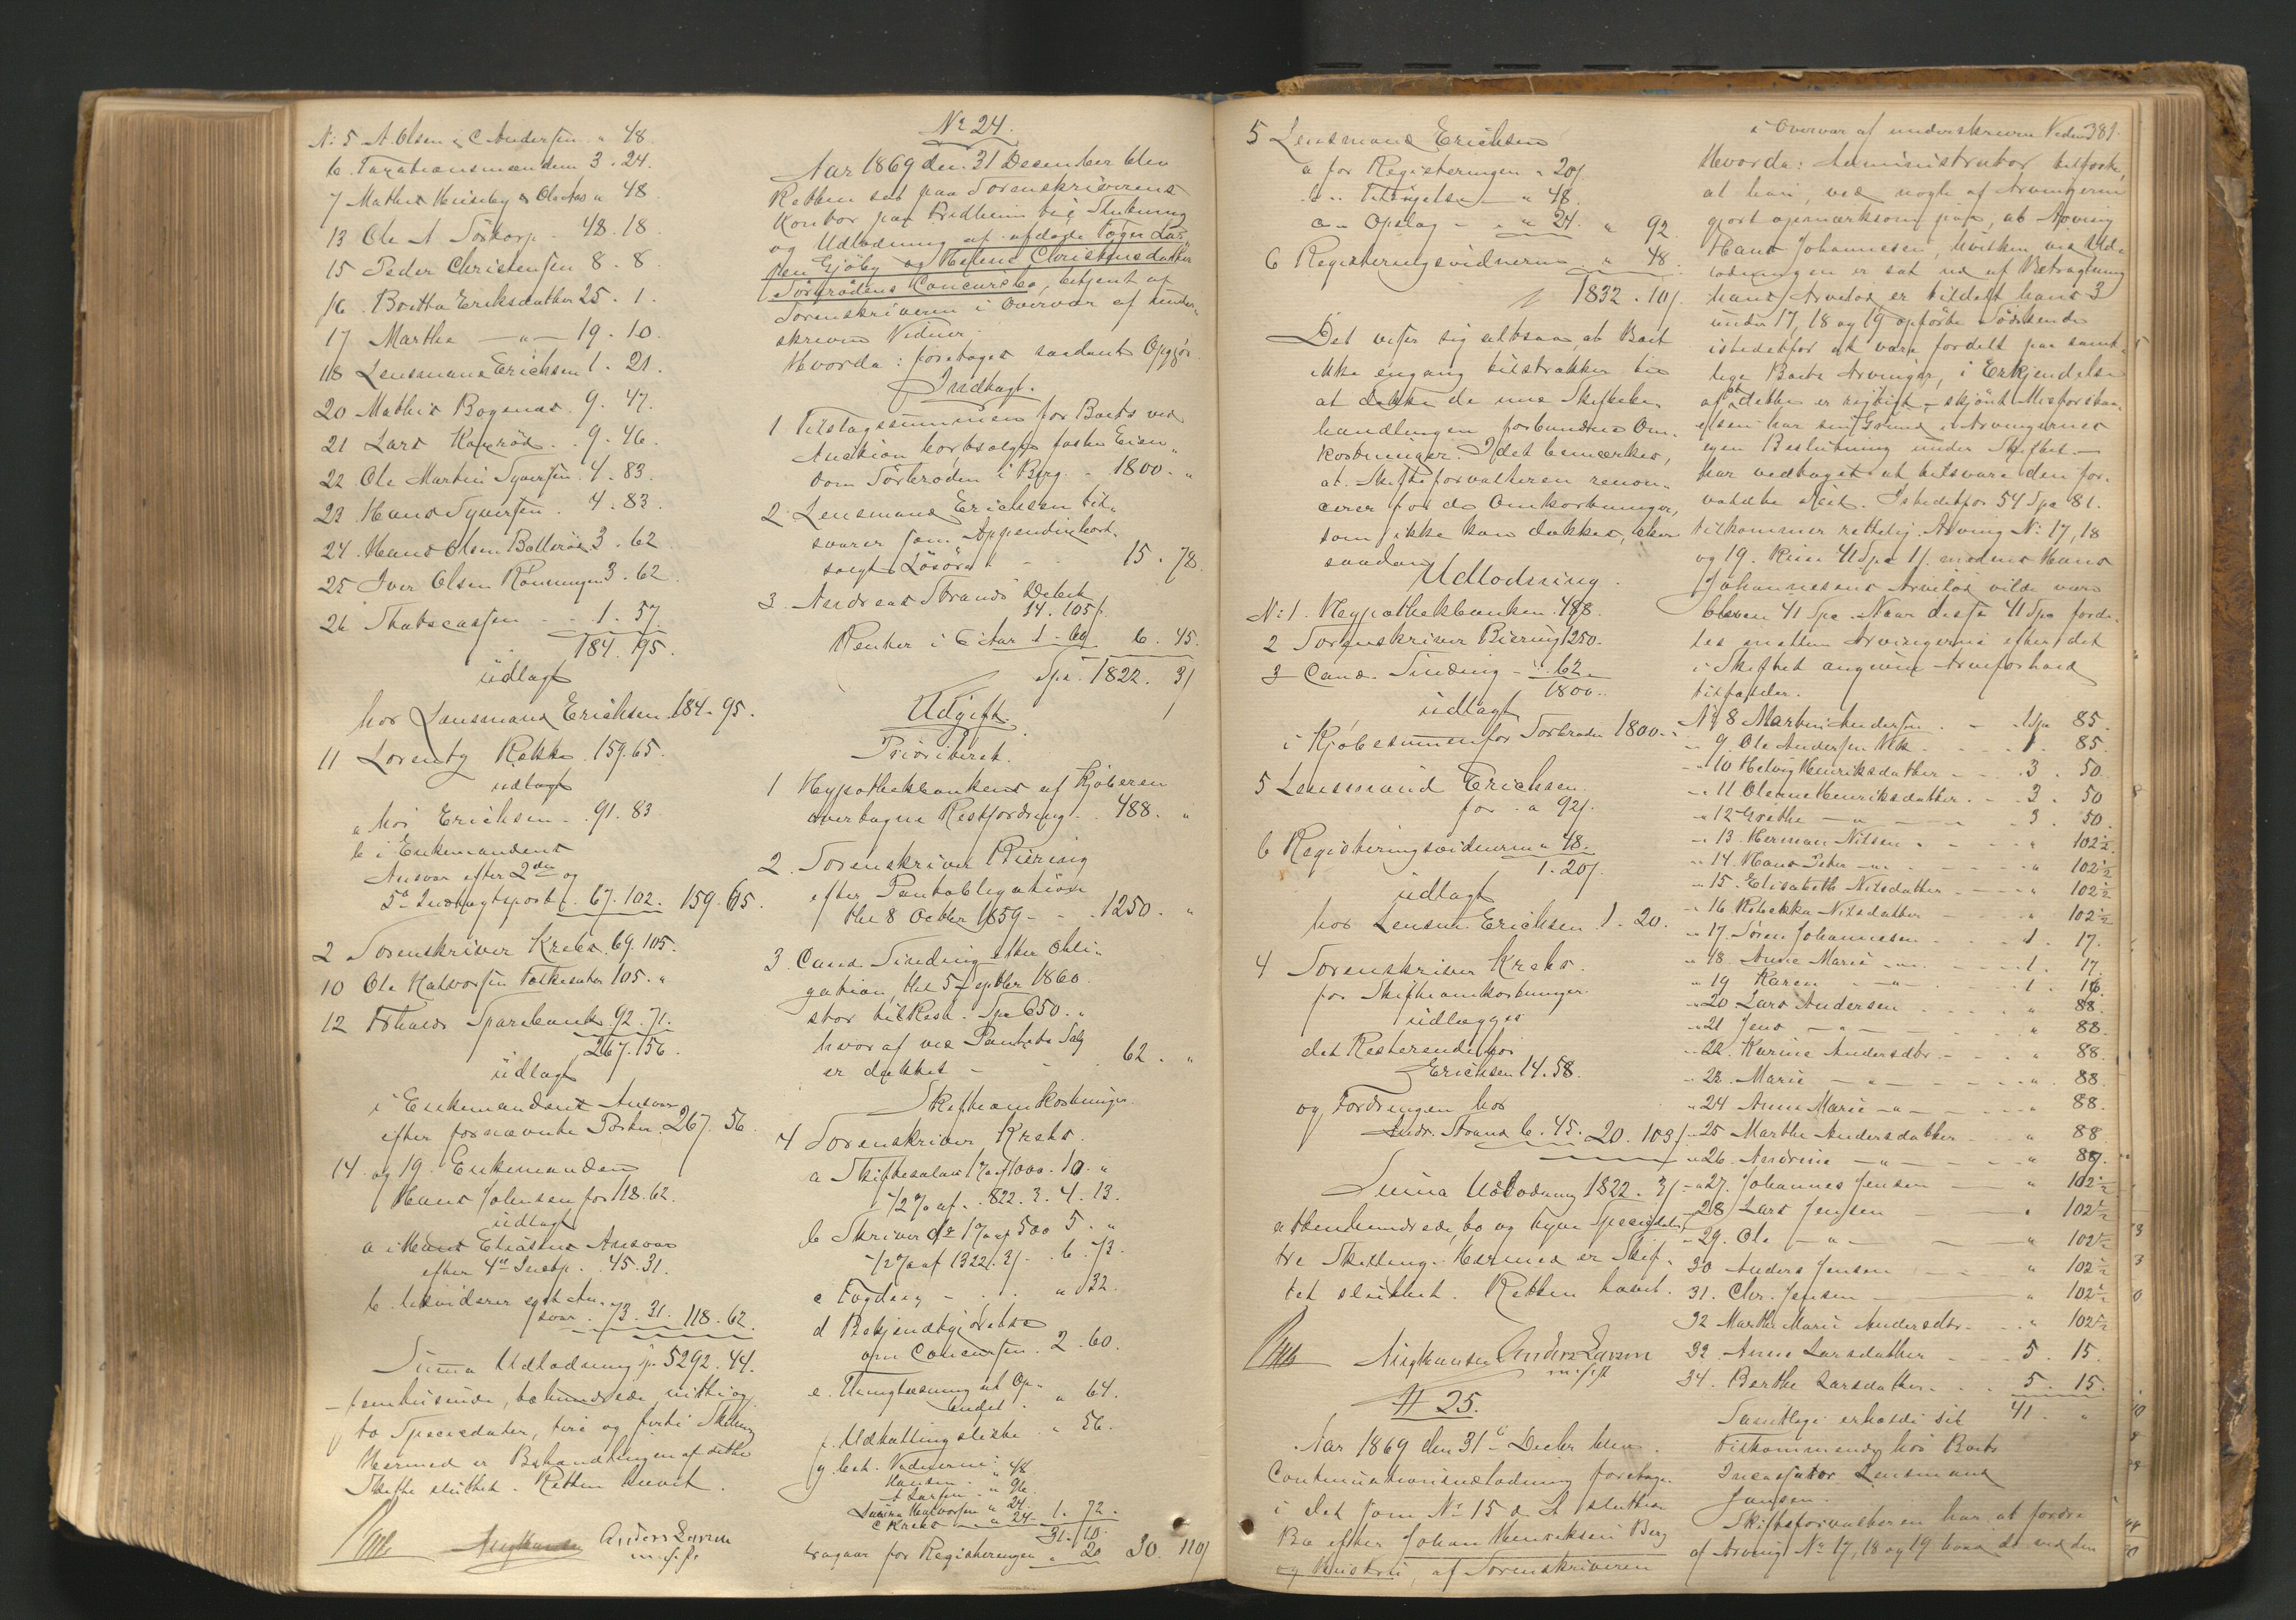 N: 5 A Olsen & C Andersen " 48
6. Taxationsmændene 3. 24.
7 Mathis Huseby & Ole Aas " 48
13 Ole A Torkorp 48. 18.
15 Peder Christensen 8. 8.
16. Berthe Eriksdatter 25. 1.
17 Marthe —"— 19. 10.
18 Lensmand Erichsen 1. 21.
20 Mathis Bogenæs. 9. 47.
21 Lars 9. 46.
22. Ole Martin Syversen. 4. 83.
23 Hans Syversen. 4. 83.
24. Hans Olsen 3. 62
25 Iver Olsen Rønningen 3. 62.
26 1. 57.
184. 95.
udlagt
hos Lensmand Erichsen 184. 95.
11 Lorentz Rokke. 159. 65.
udlagt
a hos Erichsen. 91. 83
b i Enkemandens
Ansvar efter 2den og
5te Indtægtspost. 67. 102. 159. 65.
2 Sorenskriver Krebs. 69. 105.
10 Ole Halvorsen 105. "
12 Sparebank. 92. 71.
267. 56.
udlagt
i Enkemandens Ansvar
efter fornævnte Poster. 267. 56.
14. og 19. Enkemanden
Hans Johnsen for 118. 62.
udlagt
a i Hans Eliasens Ansvar
efter 4de Indtp. 45. 31.
b. likviderer eget An-
svar. 73. 31. 118. 62.
Suma Udlodning Sp 5292. 44.
– femtusinde, tohundrede nitti og
to Speciedaler, fire og firti Skilling
Hermed er Behandlingen af dette
Skifte sluttet. Retten hævet.
Anders Larsen
m. f. p.
No 24.
Aar 1869 den 31 December blev
Retten sat paa Sorenskriverens
Kontor paa Fredheim til Slutning
og Udlodning af afdøde Lar-
sen Gjøby og Helene Christensdatter
Torbrødens Concursbo, betjent af
Sorenskriveren i Overvær af under-
skrevne Vidner.
Hvorda: foretoges saadant Opgjør.
Indtægt.
1 Tilslagssummen for Boets ved
Auktion bortsolgte faste Eien-
dom Torbrøden i Berg. 1800. "
2. Lensmand Erichsen til-
svarer som Appendix bort-
solgte Løsøre 15. 78.
3. Andreas Strands Debet
14. 105/
Renter i 6 Aar 1. 60 6. 45.
Spd. 1822. 3/
Udgift.
Prioriteret.
1 Hypothekbankens af Kjøberen
overtagne Restfordring. 488. "
2. Sorenskriver Bierings
efter Pantobligation
tgl 8 Octbr 1859. 1250. "
3. Cand. Sinding efter Obli-
gation, tgl 5 Septbr 1860.
stor til Rest. Spd 650. "
hvoraf ved Pantets Salg
er dækket 62. "
Skifteomkostninger.
4 Sorenskriver Krebs.
a Skiftesalær 1% af 1000. 10. "
1/2 % af 822. 3. 4. 13.
b Skriver do 1% af 500 5. "
1/2 % af 1322. 3/. 6. 73.
c Fogden " 32.
d Bekjendtgjørelse
om Concursen. 2. 60.
e. Thinglæsning at Op-
budet. " 64.
f. Udkallingsseddel " 56.
g bet. Vidnerne:
Hansen " 48
A Larsen " 96.
Halvorsen " 24.
C Krebs " 24. 1. 72.
31. 10.
fragaar for Registeringen " 20 30. 110/
5 Lensmand Erichsen
a for Registeringen " 20/.
b " Tilsigelse " 48.
c " Opslag " 24. " 92.
6 Registeringsvidnerne " 48.
1832. 10/.
Det viser sig altsaa at Boet
ikke engang tilstrækker til
at dække de med Skiftebe-
handlingen forbundne Om-
kostninger. Idet bemærkes,
at Skifteforvalteren renon-
cerer for de Omkostninger,
som ikke kan dækkes, skeer
saadan
Udlodning.
N: 1. Hypothekbanken 488.
2 Sorenskriver Biering 1250.
3 Cand. Sinding 62
1800.
udlagt
i Kjøbesummen for Torbrøden 1800.
5 Lensmand Erichsen.
for " 92/.
6 Registeringsvidnerne " 48.
1. 20/.
udlagt
hos Lensm. Erichsen 1. 20.
4 Sorenskriver Krebs.
for Skifteomkostninger
udlægges
det Resterende hos
Erichsen 14. 58.
og Fordringen hos
Andr. Strand 6. 45. 20. 103/
Suma Udlodning 1822. 3/
attenhundrede, to og tyve Speciedaler
tre Skilling. Hermed er Skif-
tet sluttet. Retten hævet.
Anders Larsen
m. f. p.
N 25.
Aar 1869 den 31te Decbr blev
Continuationsudlodning foretagen
i det som No 15 d. A. sluttede
Bo efter Johan Henriksen Berg
og Hustru, af Sorenskriveren
i Overvær af underskrevne Vidner. 381.
Hvorda: Administrator tilførte,
at han, ved nogle af Arvingerne
gjort opmærksom paa, at Arving
Hans Johannesen, hvilken ved Ud-
lodningen er sat ud af Betragtning
hans Arvelod er tildelt hans 3
under 17, 18 og 19 opførte Sødskende
istedetfor at være fordelt paa samt-
lige Boets Arvinger, i Erkjendelse
af at dette er rigtigt, – skjønt Misforstaa-
elsen har sin Grund i Arvingernes
egen Beslutning under Skiftet –
har vedtaget at tilsvare den for-
voldte Feil. Istedetfor 54 Spd 81.
tilkommer rettelig Arving N: 17, 18
og 19. Kun 41 Spd 1/. medens Hans
Johannesens Arvelod vilde være
bleven 41 Spd. Naar disse 41 Spd forde-
les mellem Arvingerne efter det
i Skiftet angivne Arveforhold
tilfalder.
No 8 Martin Andersen 1 Spd 85.
" 9. Ole Andersen 1. 85.
" 10 Helvig Henriksdatter 3. 50.
" 11 Oleane Henriksdatter 3. 50
" 12 Grethe —"— 3. 50.
" 13 Herman Nilsen " 102½.
" 14. Hans Peter —"— " 102½
" 15. Elisabeth Nilsdatter " 102½
" 16 Rebekka Nilsdatter " 102½
" 17. Søren Johannesen 1. 17.
" 18 Anne Marie —"— 1. 17.
" 19 Karen —"— 1. 16.
" 20 Lars Andersen " 88.
" 21 Jens —"— " 88.
" 22. Karine Andersdtr. " 88.
" 23. Marie —"— " 88.
" 24 Anne Marie —"— " 88.
" 25 Marthe Andersdatter " 88.
" 26. Andrine —"— " 87.
" 27. Johannes Jensen " 102½
" 28 Lars Jensen " 102½
" 29. Ole —"— " 102½
30 Anders Jensen " 102½
31. Chr. Jensen " 102½
32 Marthe Marie Andersdtr. " 102½
33. Anne Larsdatter 5. 15.
34. Berthe Larsdatter 5. 15.
41. "
Samtlige erholde sit
Tilkommende hos Boets
Incassator Lensmand
Jansen.
Skifteforvalteren har at fordre
af Arving No 17, 18 og 19 hvad de ved den